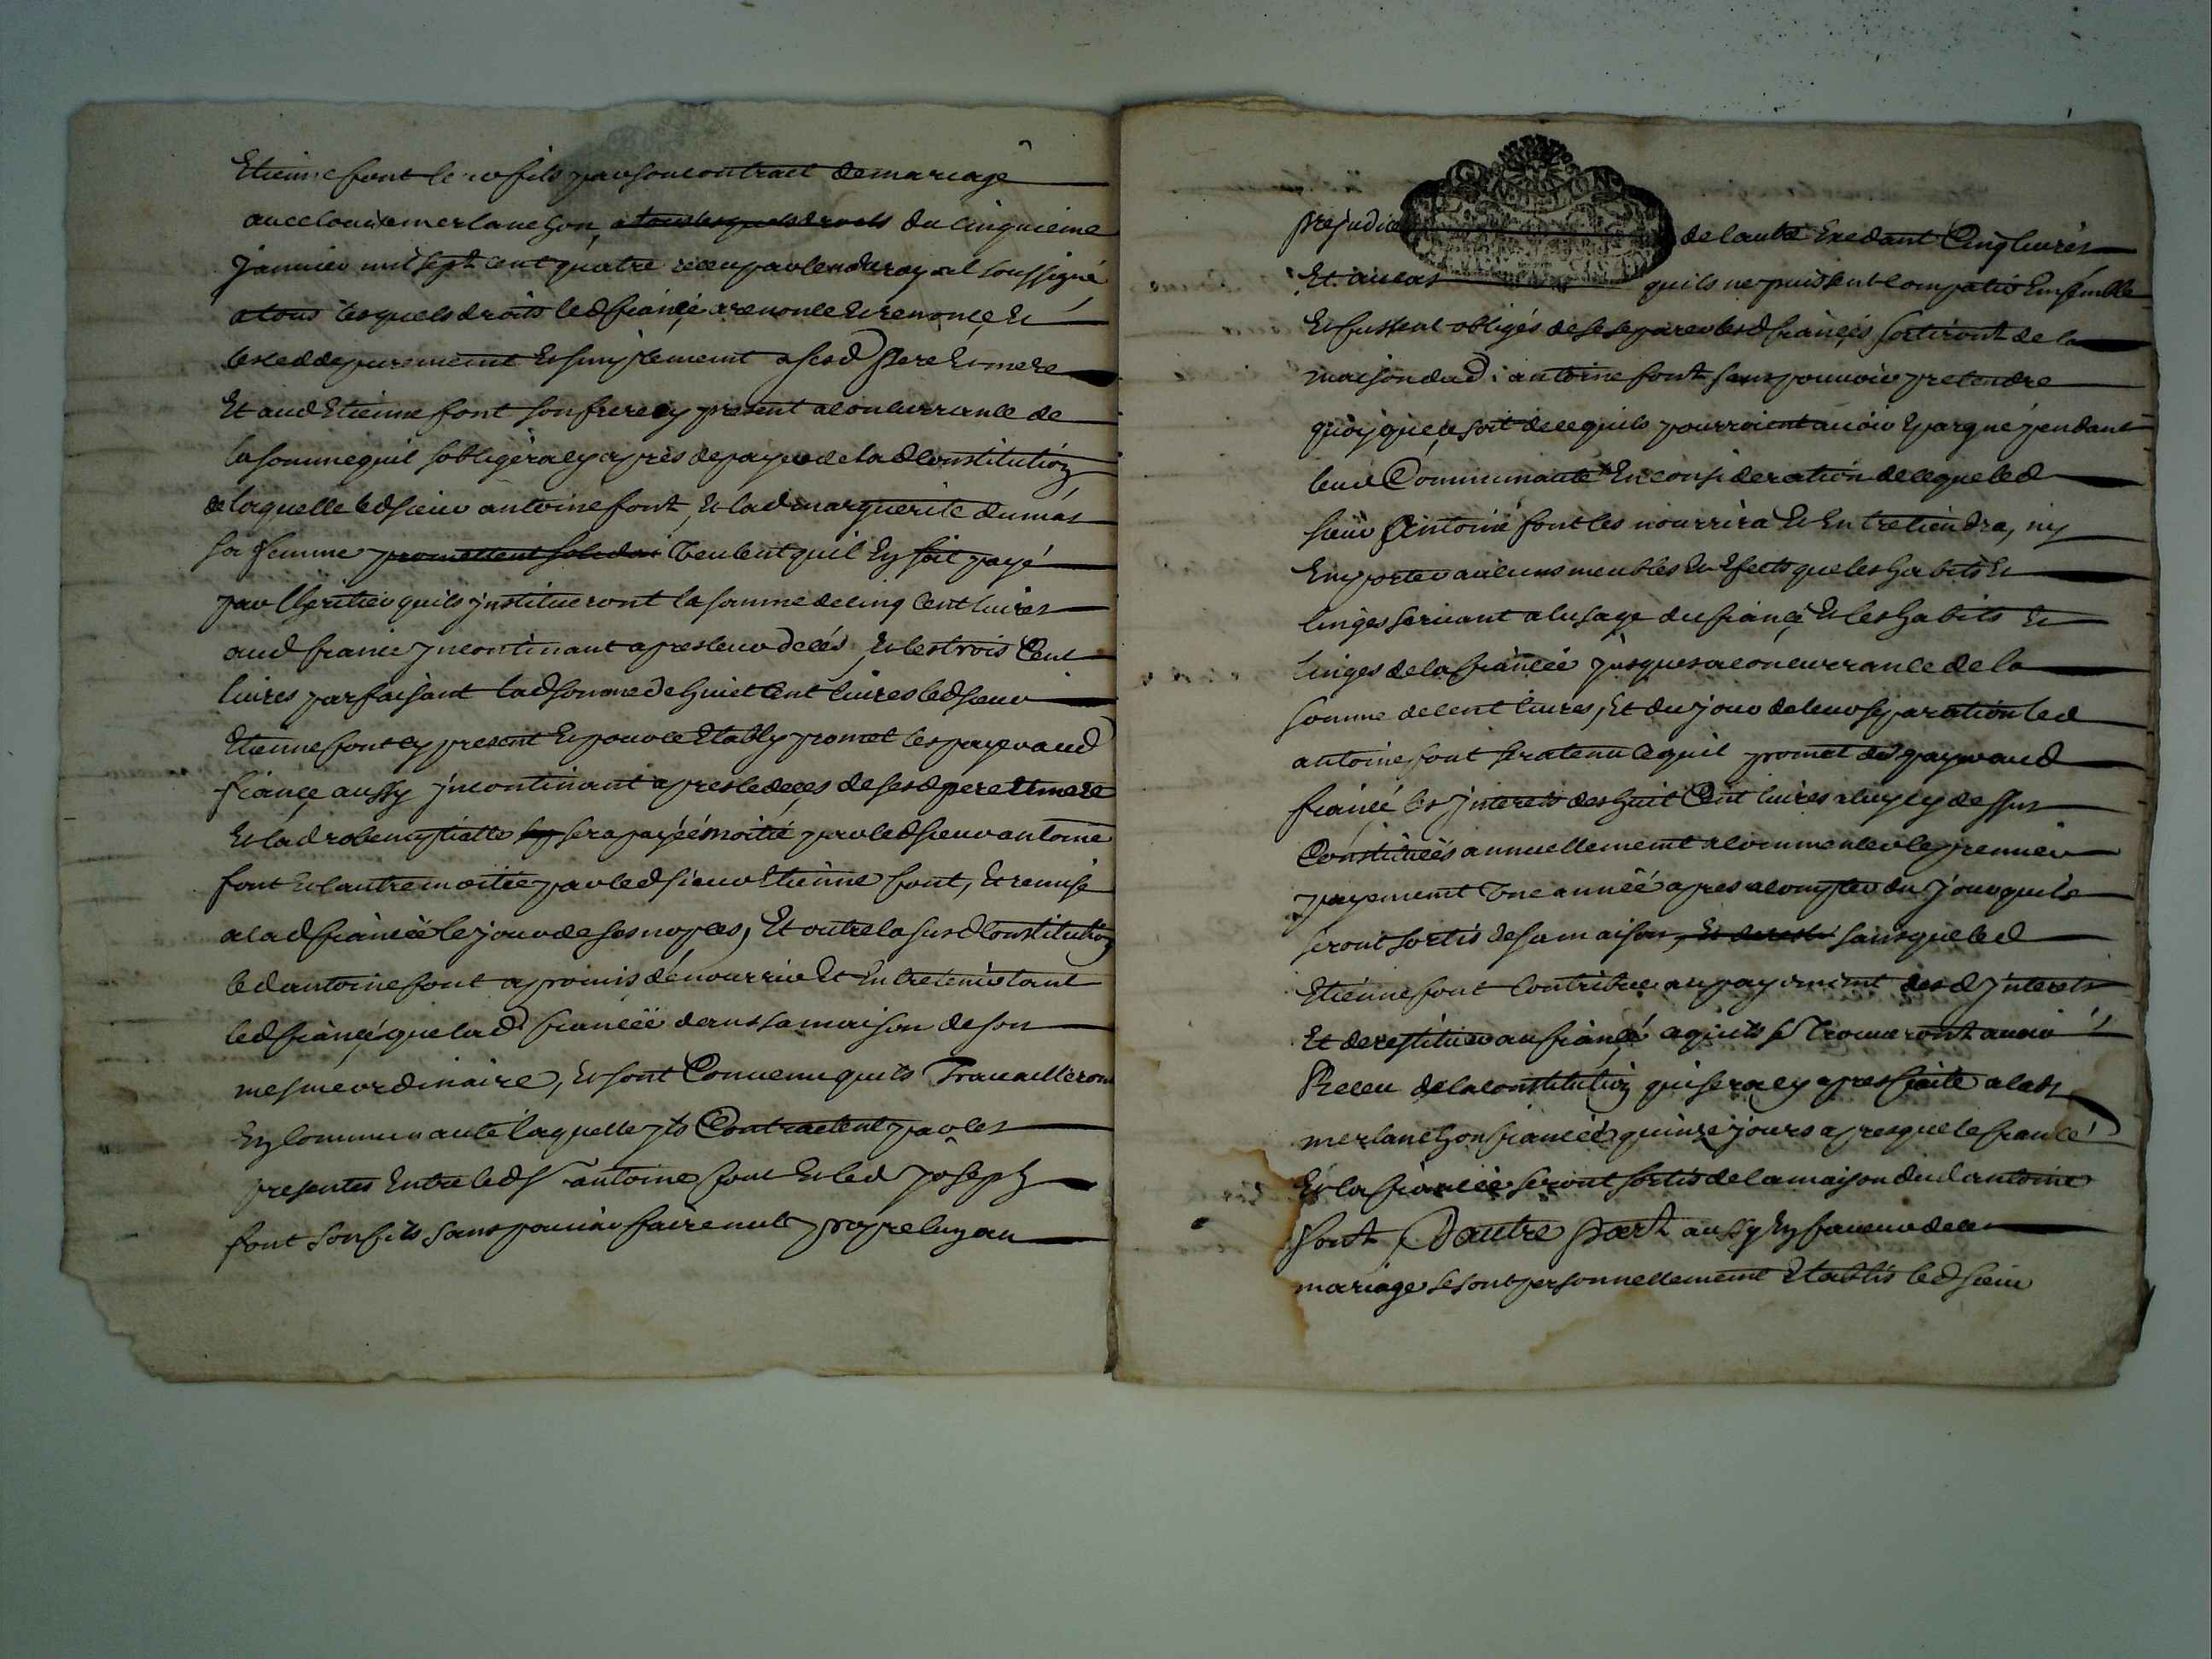 Etienne font leur fils par son contract de mariage
avec louise merlanchon, a tous lesquels droits du cinquieme
janvier mil sept cent quatre receu par le nore royal soussigné
a tous lesquels droits led fiancé a renoncé et renonce, et
les cedde purement et simplement a sesd pere et mere
Et aud Etienne font son frere cy present a concurrance de
la somme quil sobligera cy apres de payer de lad constitution
de laquelle led sieur antoine font, et lad marguerite dumas
sa femme promettent solidai veulent quil en soit payé
par lheritier quils institueront la somme de cinq cent livres
aud fiancé incontinant apres leur decés, et les trois cent
livres parfaisant lad somme de huict cent livres led sieur
Etienne font cy present et pour ce Etably promet les payer aud
fiancé aussy incontinant apres le deces de sesd pere et mere
et lad robe nuptialle sera payéé moitié par led sieur antoine
font et lautre moitée par led sieur Etienne font, et remise
a lad fiancéé le jour de ses nopces, Et outre la susd constitution
led antoine font a promis de nourrir et entretenir tant
led fiancé que lad fiancéé dans sa maison de son
mesme ordinaire, et sont convenu quils Travailleront
En communauté laquelle ils Contractent par les
presentes entre led S antoine font et led joseph
font son fils sans pouvoir faire nulle propre lun au
prejudice de lautre Exedant Cinq livres
Et au cas quils ne puissent compatir Ensemble
Et fussent obligés de se separer lesd fiancés sortiront de la
maison dud antoine font sans pouvoir pretendre
quoy que ce soit de ce quils pourroient avoir Epargné pendant
leurd Communauté En consideration de ce que led
sieur Antoine font les nourrira et Entretiendra, ny
Emporter aucuns meubles et Efects que les habits et
linges servant a lusage du fiancé et les habits et
linges de la fiancéé jusques a concurrance de la
somme de cent livres, Et du jour de leur separation led
antoine font sera tenu ce quil promet de payer aud
fiancé les interets des huit Cent livres a luy cy dessus
Constituéés annuellement a commencer le premier
payement une annéé apres a compter du jour quils
seront sortis de sa maison, et de reste sans que led
Etienne font contribue au payement desd interets
Et de restituer au fiancé ce quils se trouveront avoir
Receu de la constitution qui sera cy apres faite a lad
merlanchon fiancéé quinze jours apres que le fiancé
Et la fiancéé seront sortis de la maison dud antoine
font, Dautre part aussy En faveur de ce
mariage se sont personnellement Etablis led sieur